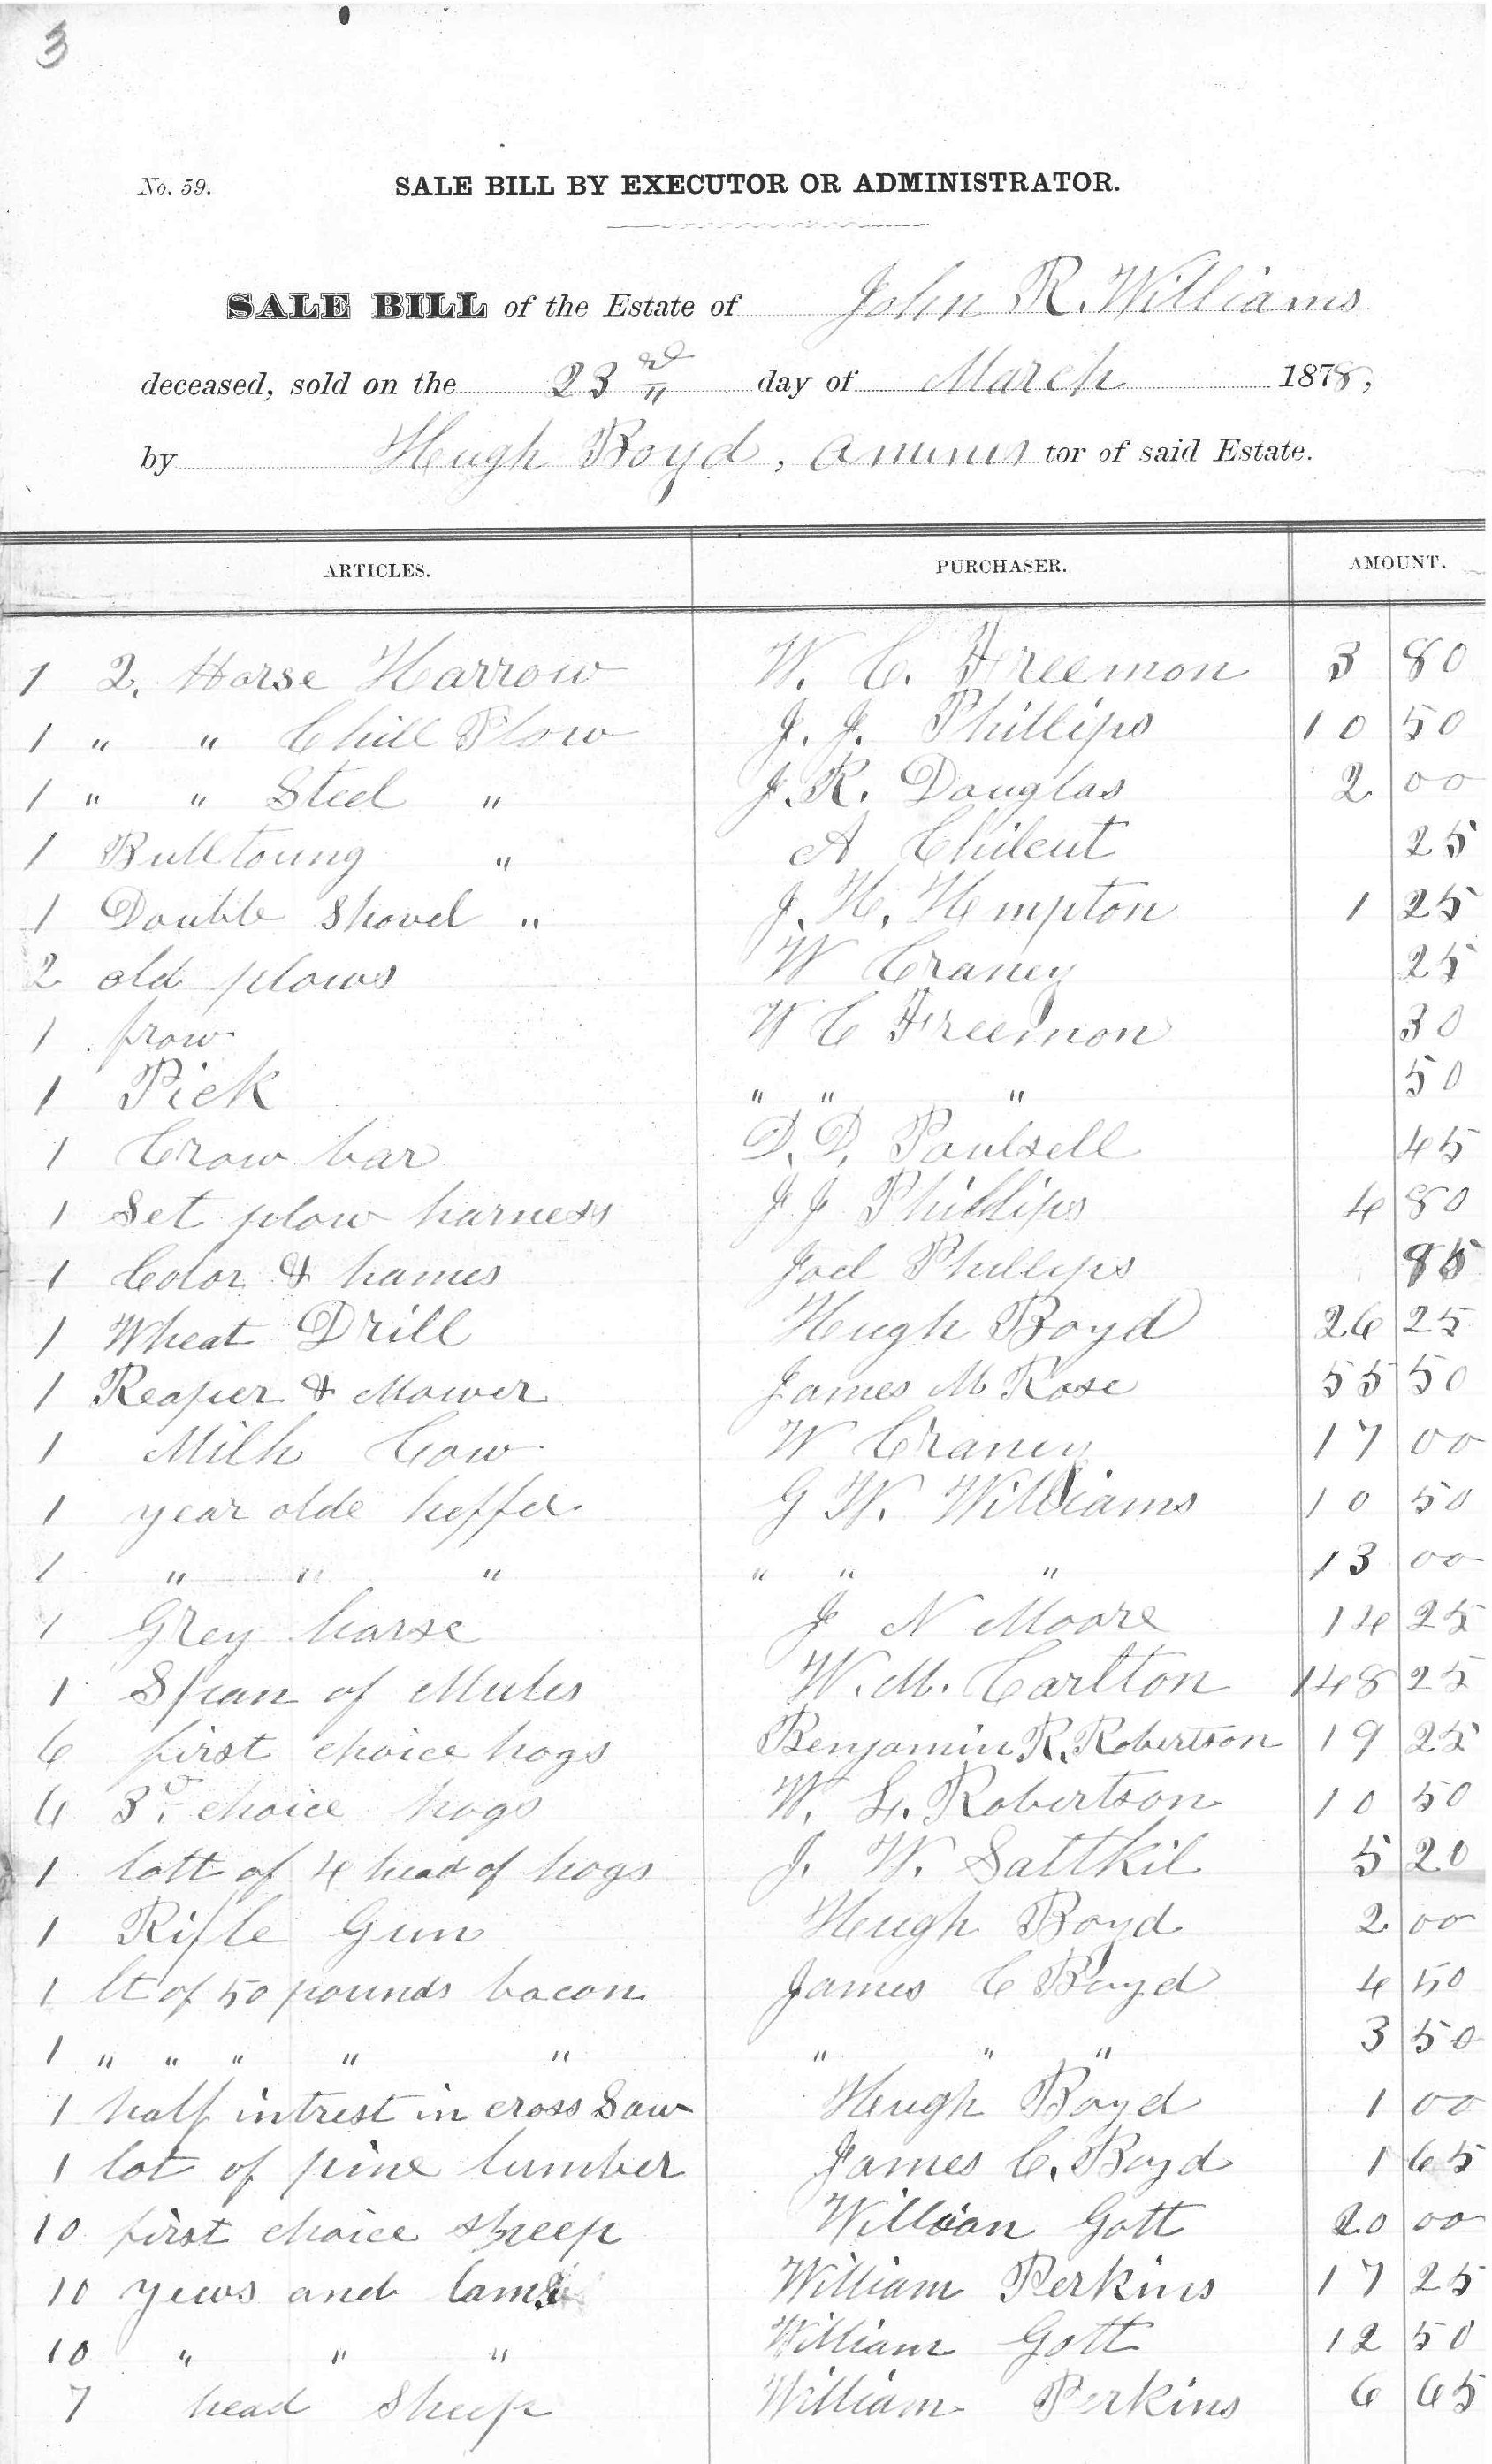 3
No. 59. SALE BILL BY EXECUTOR OR ADMINISTRATOR.
SALE BILL of the Estate of John R. Williams
deceased, sold on the 23rd day of March 1878,
by Hugh Boyd, aminis tor of said Estate.
ARTICLES. PURCHASER. AMOUNT.
1 2. Horse Harrow W. C. Freemon 3 80
1 " " Chill Plow J. J. Phillips 10 50
1 " " Steel " J. R. Douglas 2 00
1 Bulltoung " A Chilcut 25
1 Double Shovel " J. H. Hempton 1 25
2 old plows W Craney 25
1 frow W C Freemon 30
1 Pick " " " 50
1 Crow bar D. D. Paulsell 45
1 Set plow harness J J Phillips 4 80
1 Color & hames Joel Phillips 85
1 Wheat Drill Hugh Boyd 26 25
1 Reaper & Mower James M Rose 55 50
1 Milk Cow W Craney 17 00
1 year olde heffer G W. Williams 10 50
1 " " " " " " 13 00
1 Grey horse J N Moore 14 25
1 Span of Mules W. M. Carlton 148 25
6 first choice hogs Benjamin R. Robertson 19 25
6 3d choice hogs W. L. Robertson 10 50
1 lott of 4 head of hogs J. W. Sattkil 5 20
1 Rifle Gun Hugh Boyd 2 00
1 lt of 50 pounds bacon James C Boyd 4 50
1 " " " " " " " " 3 50
1 half intrest in cross Saw Hugh Boyd 1 00
1 lot of pine lumber James C. Boyd 1 65
10 first choice sheep William Gott 20 00
10 yews and lams William Perkins 17 25
10 " " " William Gott 12 50
7 head Sheep William Perkins 6 65